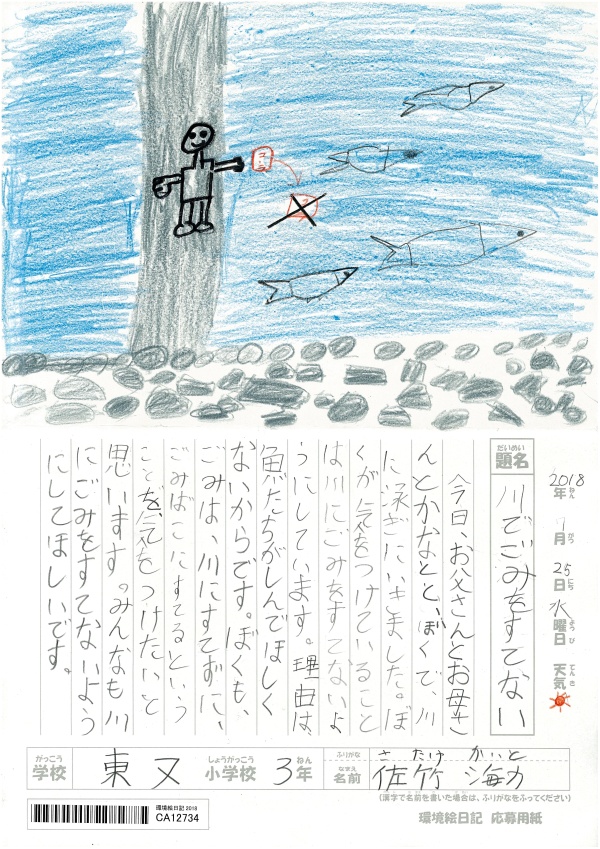 コーラ
2018年 7月 25日 水曜日 天気
ねん がつ にち ようび てんき
だいめい
題名 川でごみをすてない
今日、お父さんとお母さ
んとかなとと、ぼくで、川
に泳ぎにいきました。ぼ
くが気をつけていること
は川にごみをすてないよ
うにしています。理由は、
魚たちがしんでほしく
ないからです。ぼくも、
ごみは、川にすてずに、
ごみばこにすてるという
ことを気をつけたいと
思います。みんなも川
にごみをすてないよう
にしてほしいです。
がっこう しょうがっこう ねん ふりがな さたけ かいと
学校 東又 小学校 3年 なまえ 名前 佐竹 海力
(漢字で名前を書いた場合は、ふりがなをふってください)
環境絵日記 2018
CA12734
環境絵日記 応募用紙